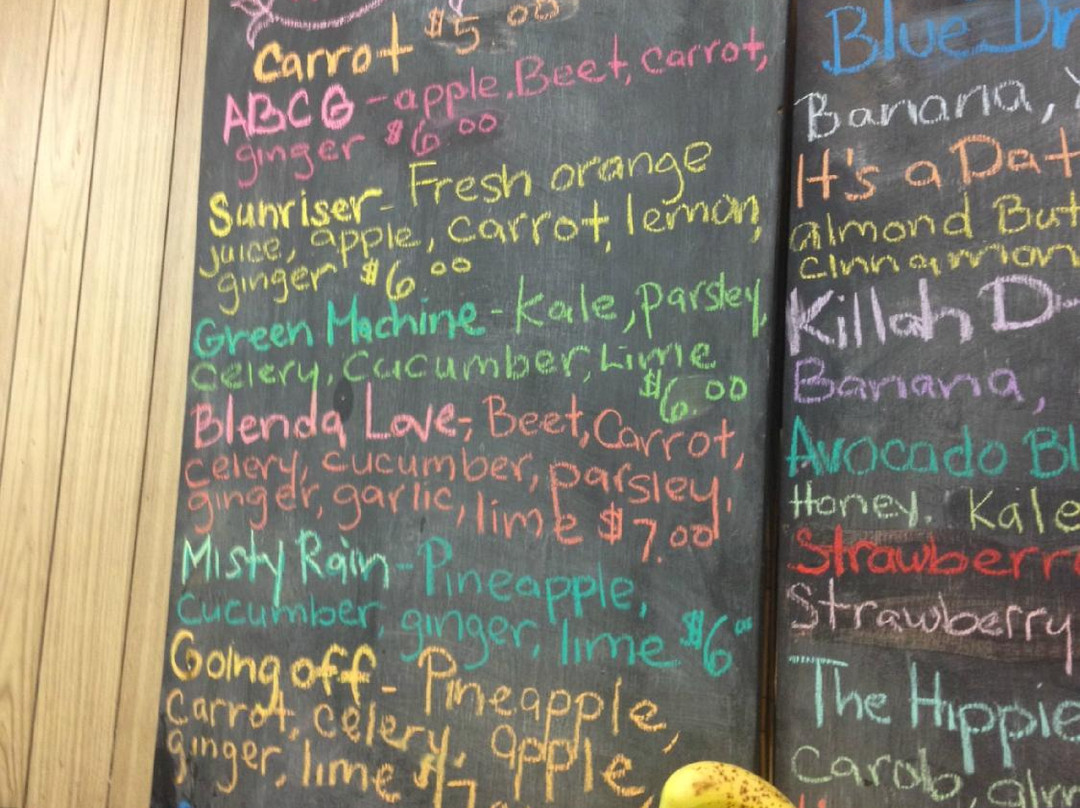 Carrot $5.00
ABCG - apple, Beet, carrot,
ginger $6.00
Sunriser - Fresh orange
juice, apple, carrot, lemon,
ginger $6.00
Green Machine - Kale, parsley,
celery, cucumber, Lime
$6.00
Blenda Love - Beet, Carrot,
celery, cucumber, parsley,
ginger, garlic, lime $7.00
Misty Rain - Pineapple,
cucumber, ginger, lime $6.00
Going off - Pineapple,
Carrot, celery, apple,
ginger, lime $7
Blue Dr
Banana,
It's a Dat
almond But
cinnamon
Killah D
Banana,
Avocado Bl
Honey. Kale
Strawberr
Strawberry
The Hippie
Carob, alm